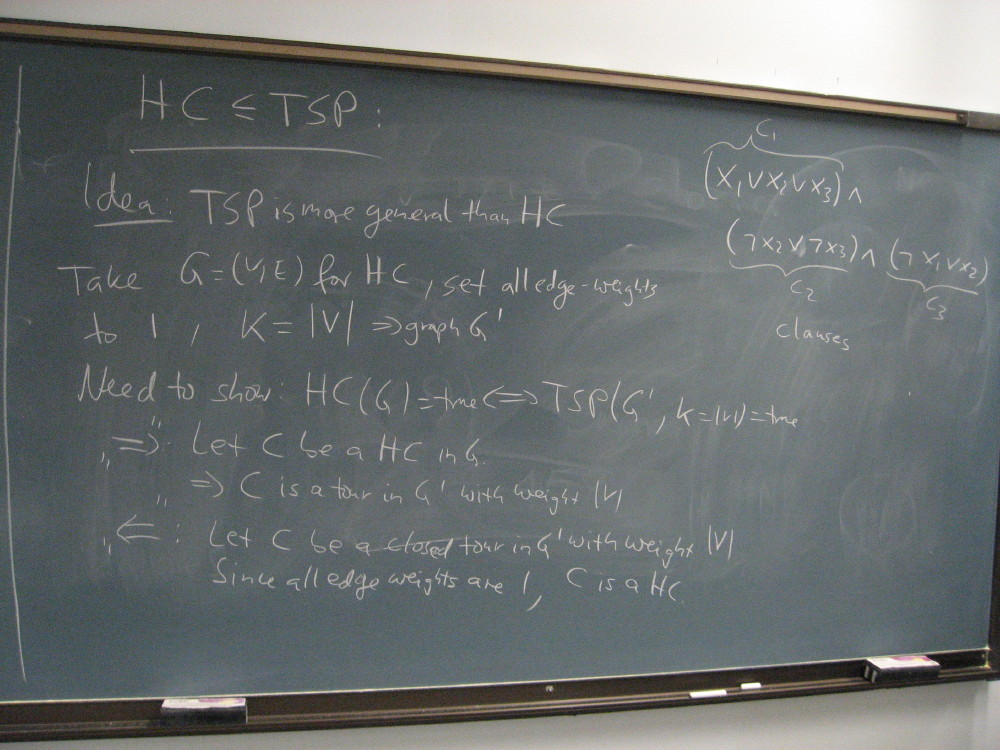 HC ≤ TSP:
Idea: TSP is more general than HC
Take G=(V,E) for HC, set all edge-weights
to 1, K=|V| ⇒ graph G'
Need to show: HC(G)=true ⇔ TSP(G', K=|V|)=true
„⇒": Let C be a HC in G.
⇒ C is a tour in G' with weight |V|
„⇐": Let C be a closed tour in G' with weight |V|
Since all edge weights are 1, C is a HC.
C₁
(X₁ ∨ X₂ ∨ X₃) ∧
(¬X₂ ∨ ¬X₃) ∧ (¬X₁ ∨ X₂)
C₂ C₃
clauses